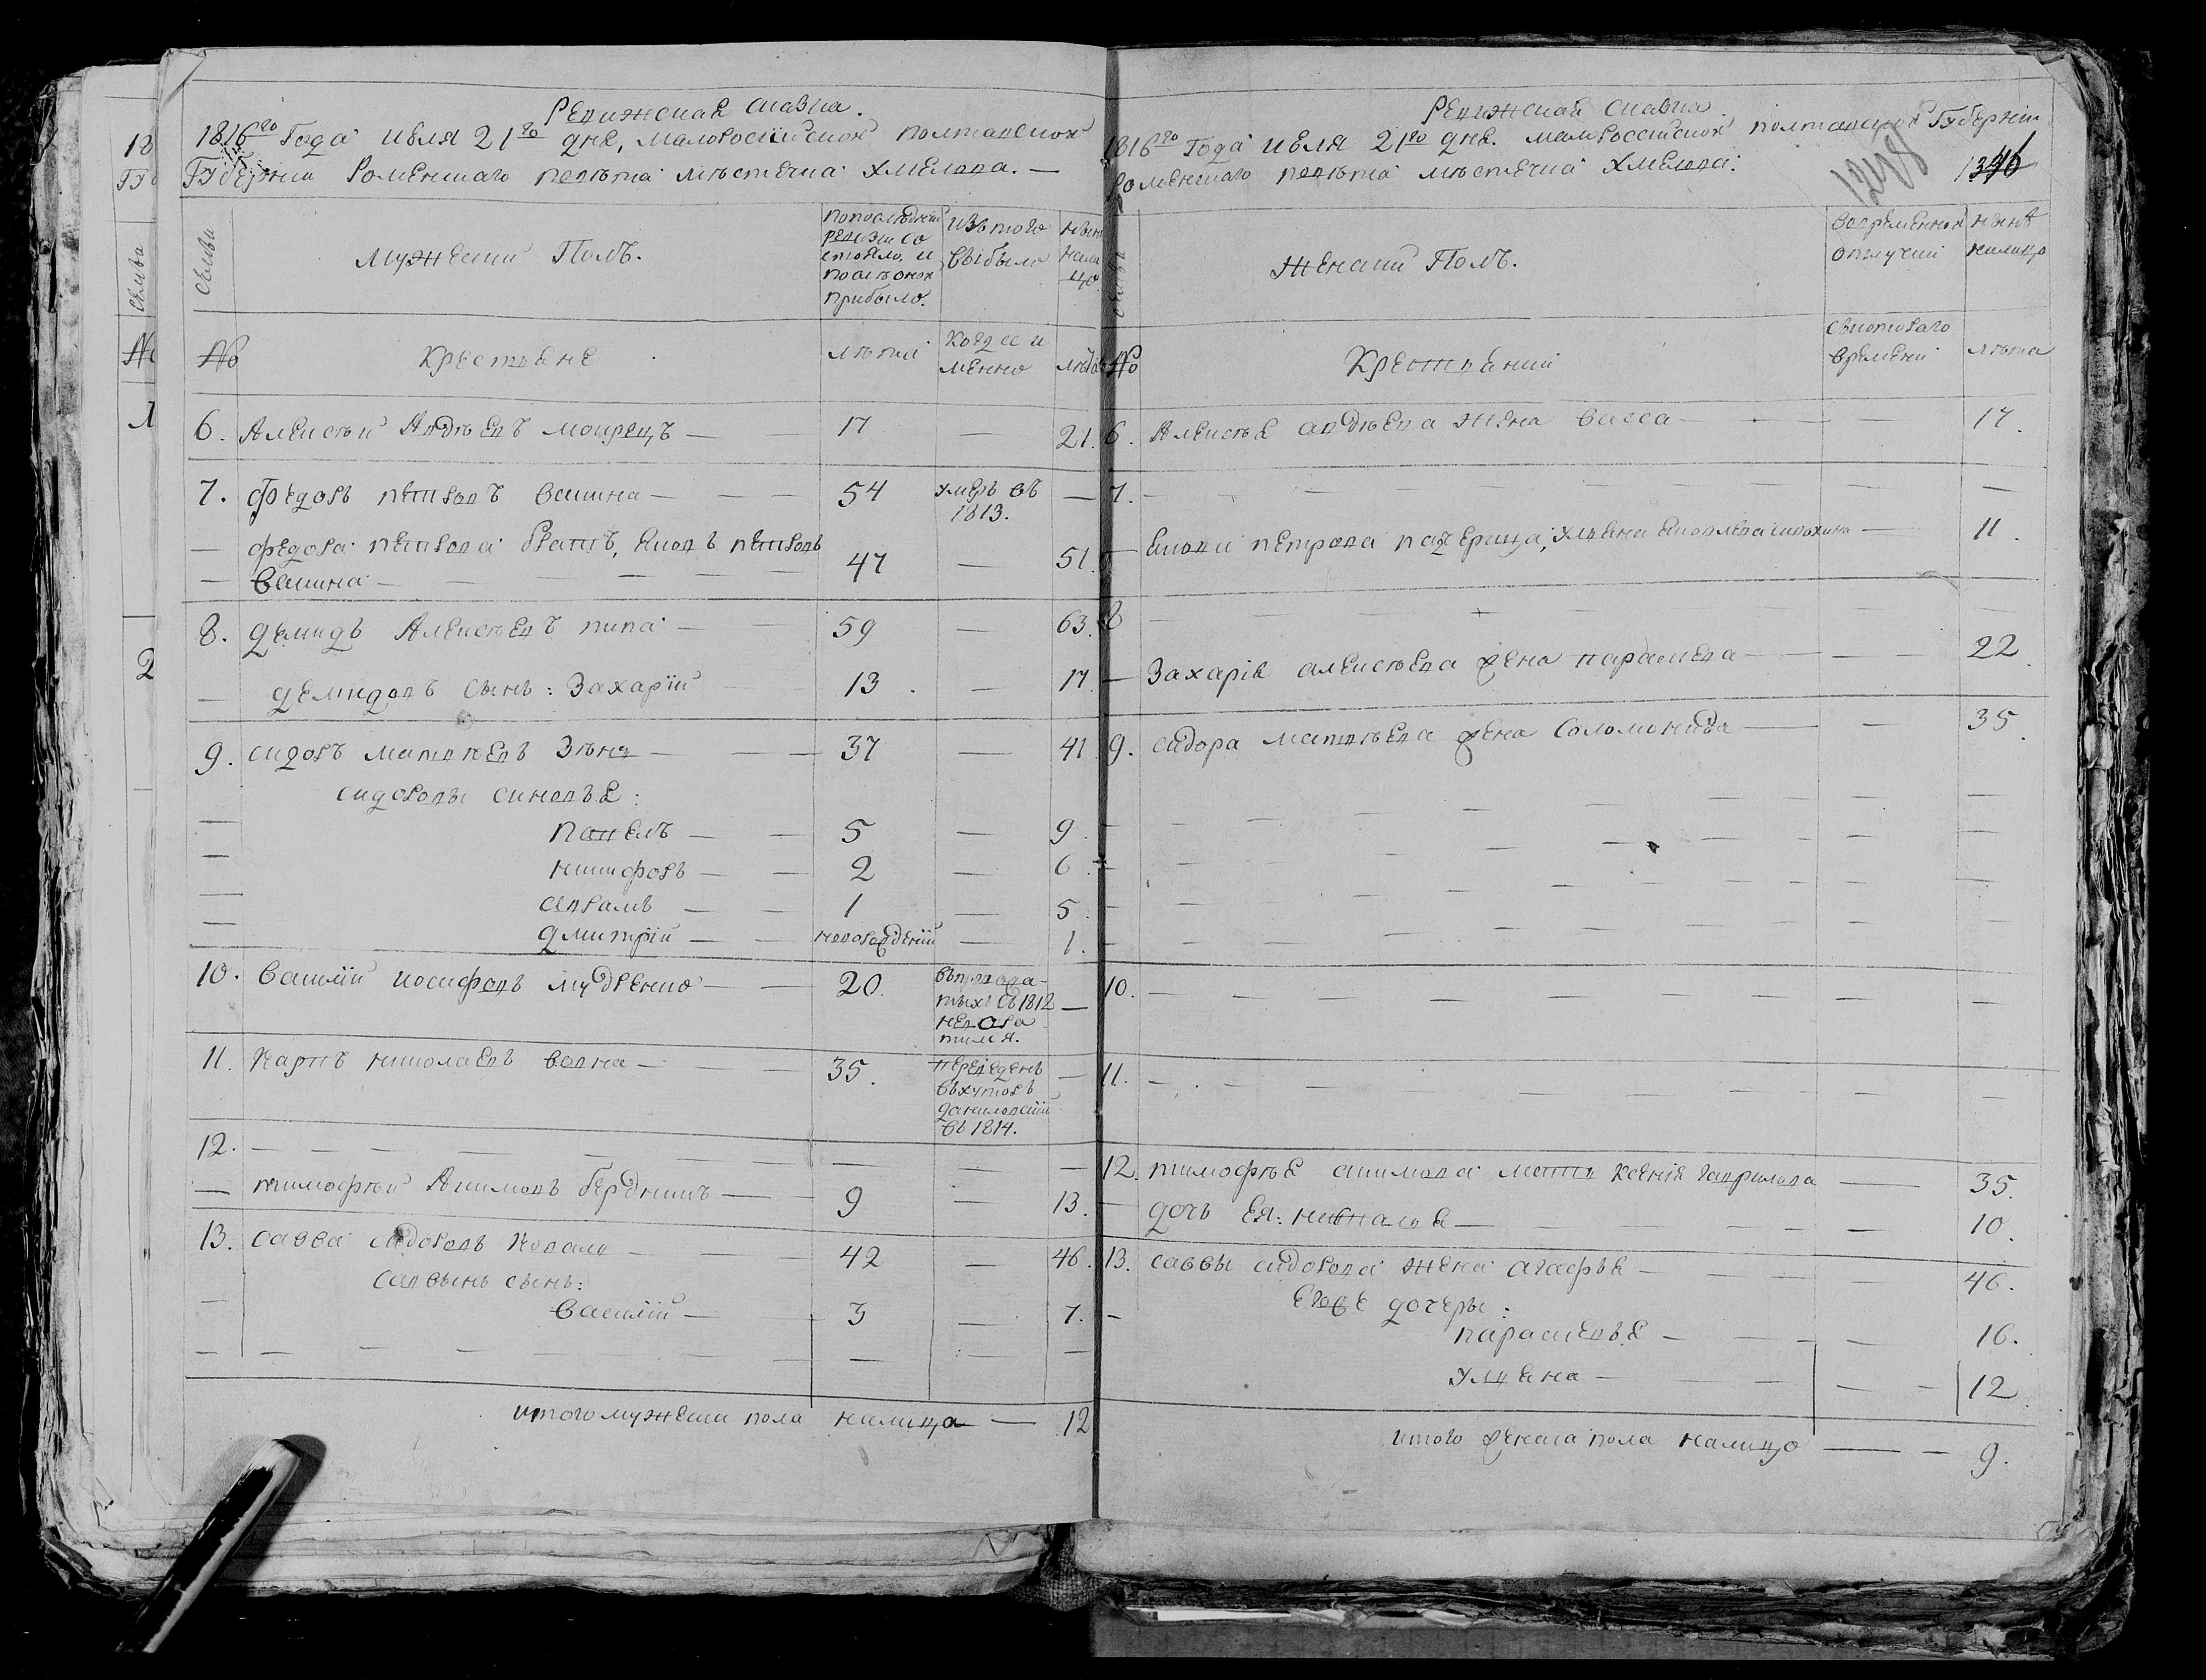 Ревижская скаска.
1816го Года июля 21го дня, малоросийской полтавской
Губернии Роменскаго повѣта мѣстечка Хмелова. —
Семьи
Мужеский Полъ.
попоследней ревизии состояло, и послѣ оной прибыло.
изъ того выбыло
нынѣ налицо
№
Крестьяне
лѣта
Когда именно
лѣта
6. Алексѣй Авдѣевъ — 17 — 21.
7. Федоръ петровъ — 54 умеръ въ 1813. —
Федора петрова братъ, Яковъ петровъ
47 — 51.
8. Демидъ Алексѣевъ — 59 — 63.
Демидовъ сынъ: Захарий — 13. — 17.
9. Сидоръ матвѣевъ — 37 — 41
сидоровы синовья:
павелъ — 5 — 9.
никифоръ — 2 — 6.
аврамъ — 1 — 5.
дмитрий — новорожденний — 1.
10. Василий иосифовъ мудренко — 20. въ 1812 —
11. Карпъ николаевъ вовна — 35. переведенъ въхуторъ въ 1814. —
12. — — — —
тимофѣй Акимовъ бердникъ — 9 — 13.
13. Савва сидоровъ Коваль — 42 — 46.
Саввынъ сынъ:
Василий — 3 — 7.
итого мужеска пола налицо — 12
Ревижская скаска.
1816го Года июля 21го дня. малороссийской полтавской Губернии
Роменскаго повѣта мѣстечка Хмелова.
1346
Женский Полъ.
вовременной отлучки
нынѣ налицо
№
Крестьянки
съкотораго времени
лѣта
6. Алексѣя авдѣева жена васса — 17.
7. — — —
Якова петрова падчерица, ульяна яковлева — 11.
8 — — —
Захария алексѣева жена параскева — 22.
9. Сидора матвѣева жена Соломонида — 35.
10. — — —
11. — — —
12. тимофѣя акимова мать ксения гаврилова — 35.
дочь ея: наталья — 10.
13. саввы сидорова жена агафья — 46.
его же дочеры:
параскевья — 16.
ульяна — 12.
итого женска пола налицо — 9.